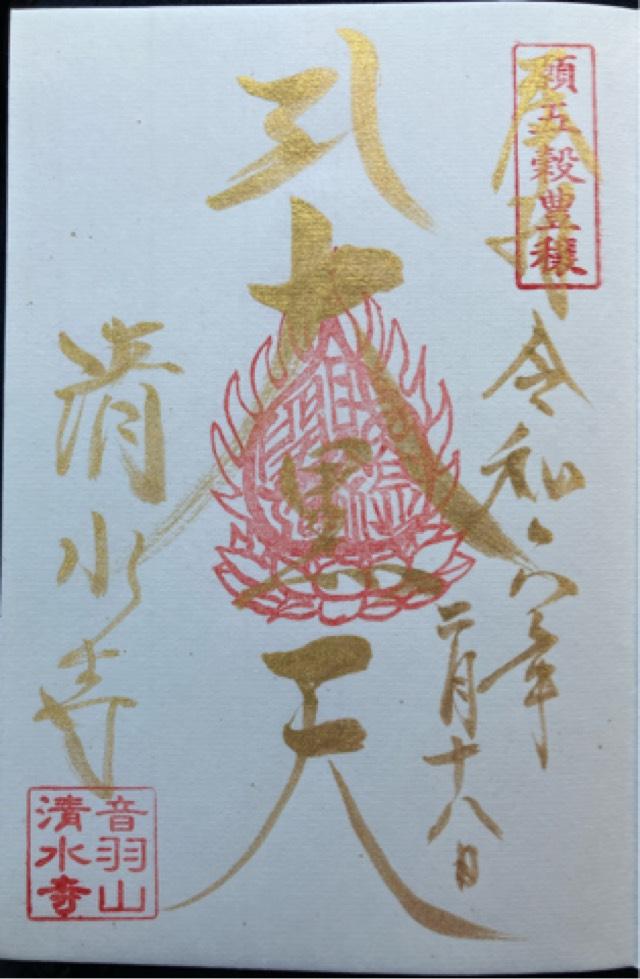 願五穀豊穣
奉拝
令和六年
二月十八日
大黒天
清水寺
音羽山
清水寺